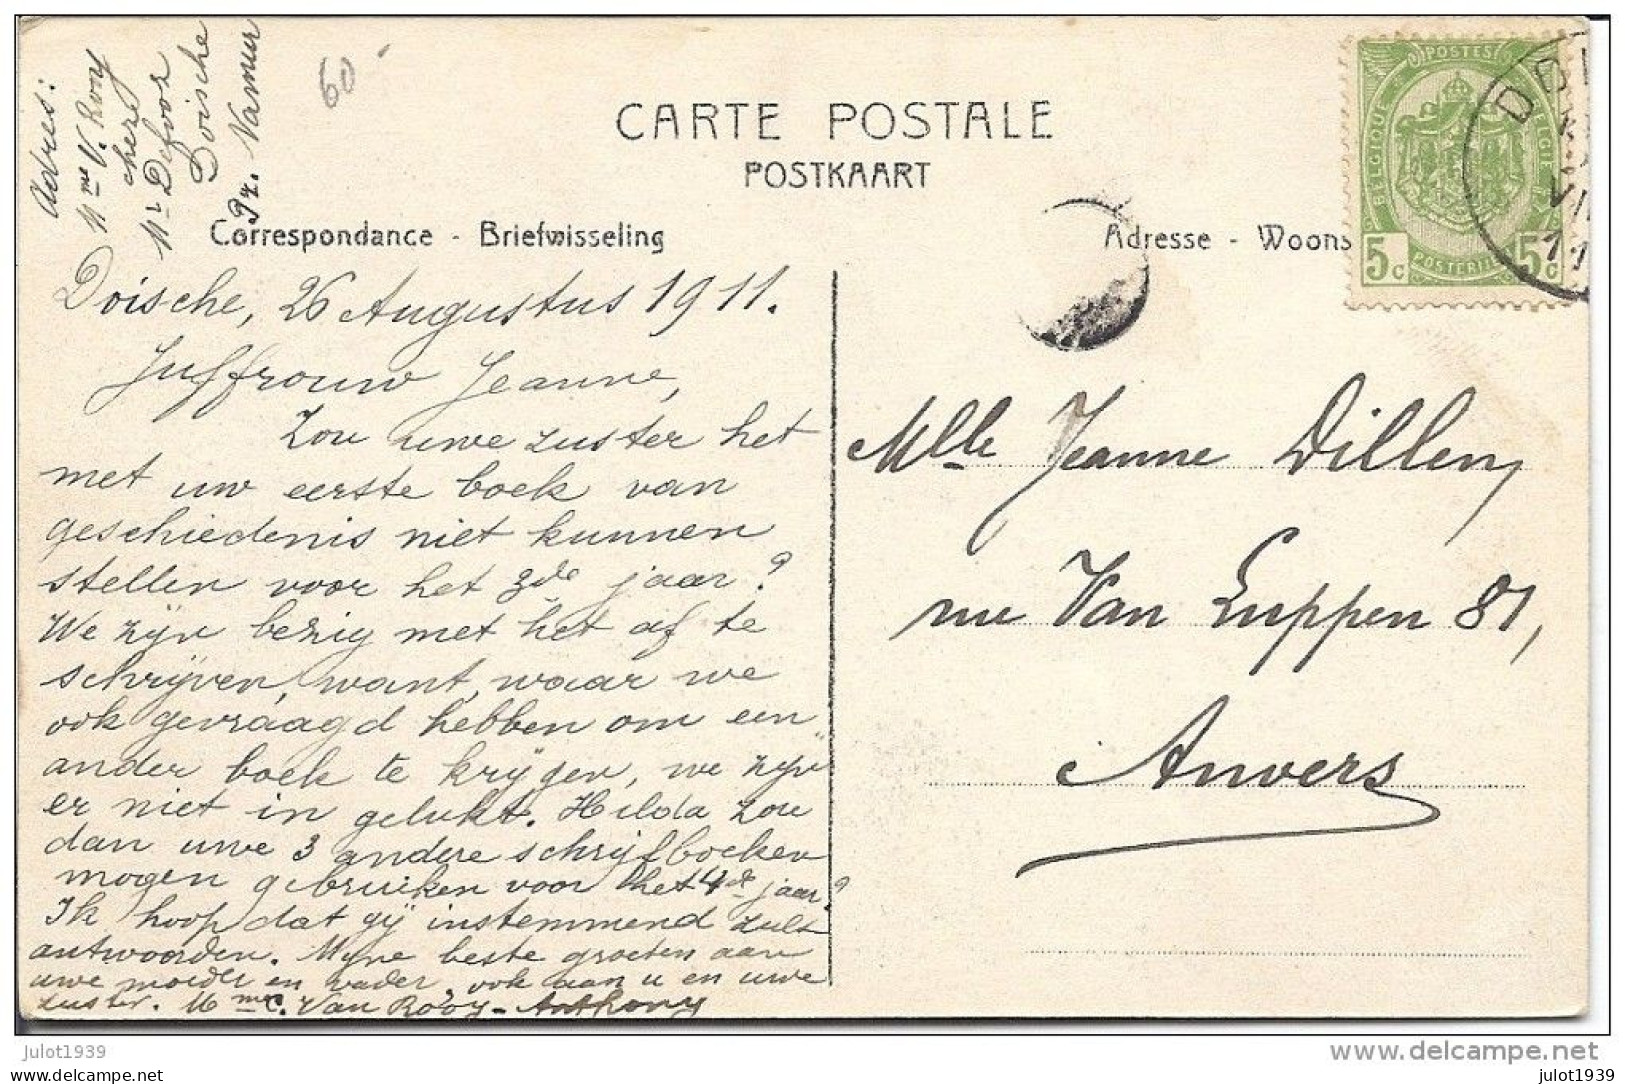 Adres:
Mme V. Rooy
chez
Mr Defoor
Doische
Pr. Namur
60
CARTE POSTALE
POSTKAART
Correspondance - Briefwisseling
Adresse - Woons
POSTES
BELGIQUE
BELGIE
5c
POSTERIJEN
5c
DOI
VII
11
Doische, 26 Augustus 1911.
Juffrouw Jeanne,
Zou uwe zuster het
met uw eerste boek van
geschiedenis niet kunnen
stellen voor het 3de jaar?
We zijn bezig met het af te
schrijven, want, waar we
ook gevraagd hebben om een
ander boek te krijgen, we zijn
er niet in gelukt. Hilda zou
dan uwe 3 andere schrijfboeken
mogen gebruiken voor het 4de jaar?
Ik hoop dat gij instemmend zult
antwoorden. Mijne beste groeten aan
uwe moeder en vader, ook aan u en uwe
zuster. Mme C. Van Rooy-Anthony
Mlle Jeanne Dillen,
rue Van Luppen 81,
Anvers
julot1939
www.delcampe.net
julot1939